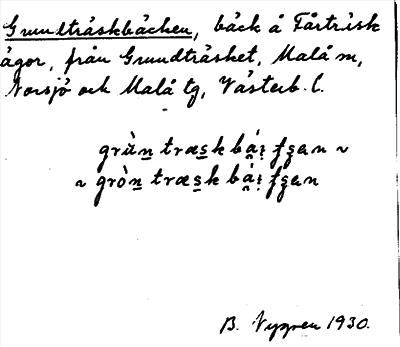 Grundträskbäcken, bäck å Fårträsk
ägor, från Grundträsket, Malå m,
Norsjö och Malå tg, Västerb. l.
grùn træsk bä́i fʂen ~
~ gròn træsk bä́i fʂen
B. Nygren 1930.